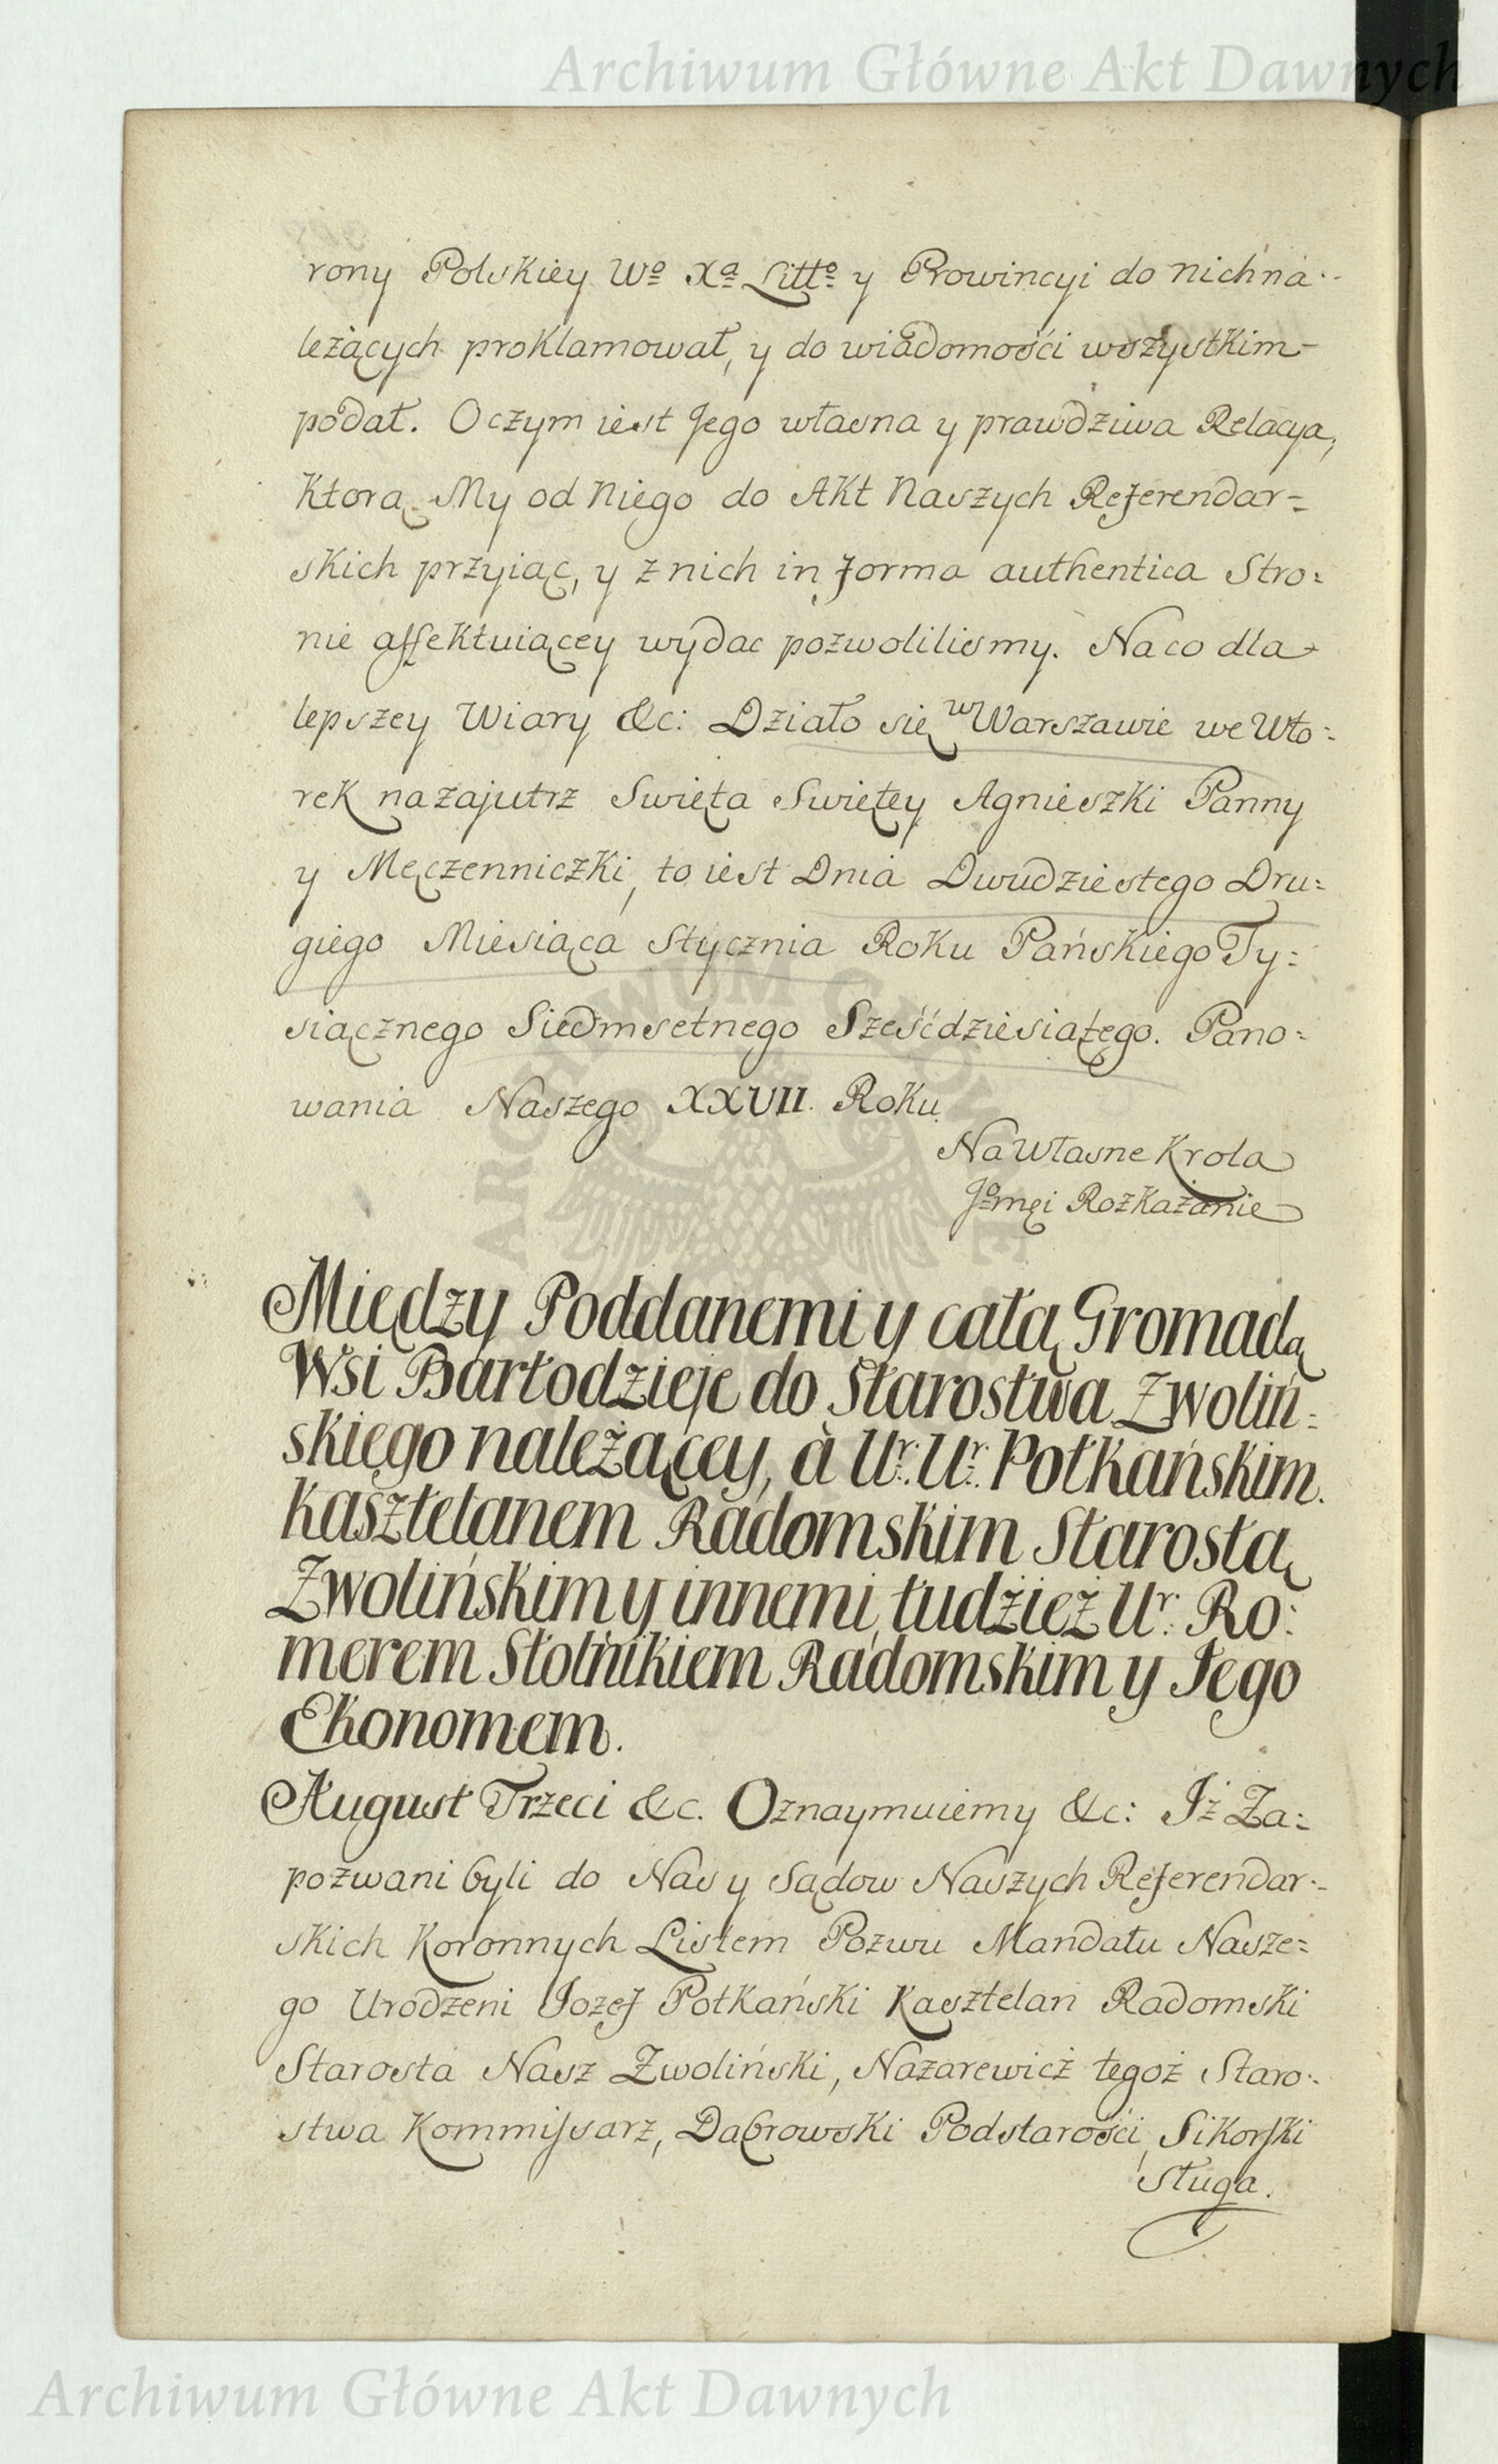 Archiwum Główne Akt Dawnych
rony Polskiey Wo Xa Litto y Prowincyi do nich na-
leżących proklamował, y do wiadomości wszystkim
podał. O czym iest Jego własna y prawdziwa Relacya,
ktorą My od Niego do Akt Naszych Referendar=
skich przyiąc, y z nich in forma authentica Stro=
nie affektuiącey wydac pozwolilismy. Na co dla
lepszey Wiary &c: Działo się w Warszawie we Wto=
rek nazajutrz Swięta Swiętey Agnieszki Panny
y Męczenniczki, to iest Dnia Dwudziestego Dru=
giego Miesiąca Stycznia Roku Pańskiego Ty=
siącznego Siedmsetnego Sześćdziesiątego. Pano=
wania Naszego XXVII. Roku
Na Własne Krola
Jomęi Rozkazanie
Między Poddanemi y całą Gromadą
Wsi Bartodzieje do Starostwa Zwoliń=
skiego należącey, à Ur. Ur. Potkańskim
Kasztelanem Radomskim Starostą
Zwolińskim y innemi, tudzież Ur. Ro=
merem Stolnikiem Radomskim y Jego
Ekonomem.
August Trzeci &c. Oznaymuiemy &c: Iż Za=
pozwani byli do Nas y Sądow Naszych Referendar=
skich Koronnych Listem Pozwu Mandatu Nasze=
go Urodzeni Jozef Potkański Kasztelan Radomski
Starosta Nasz Zwoliński, Nazarewicż tegoż Staro=
stwa Kommissarz, Dąbrowski Podstarości, Sikorski
Sługa.
Archiwum Główne Akt Dawnych